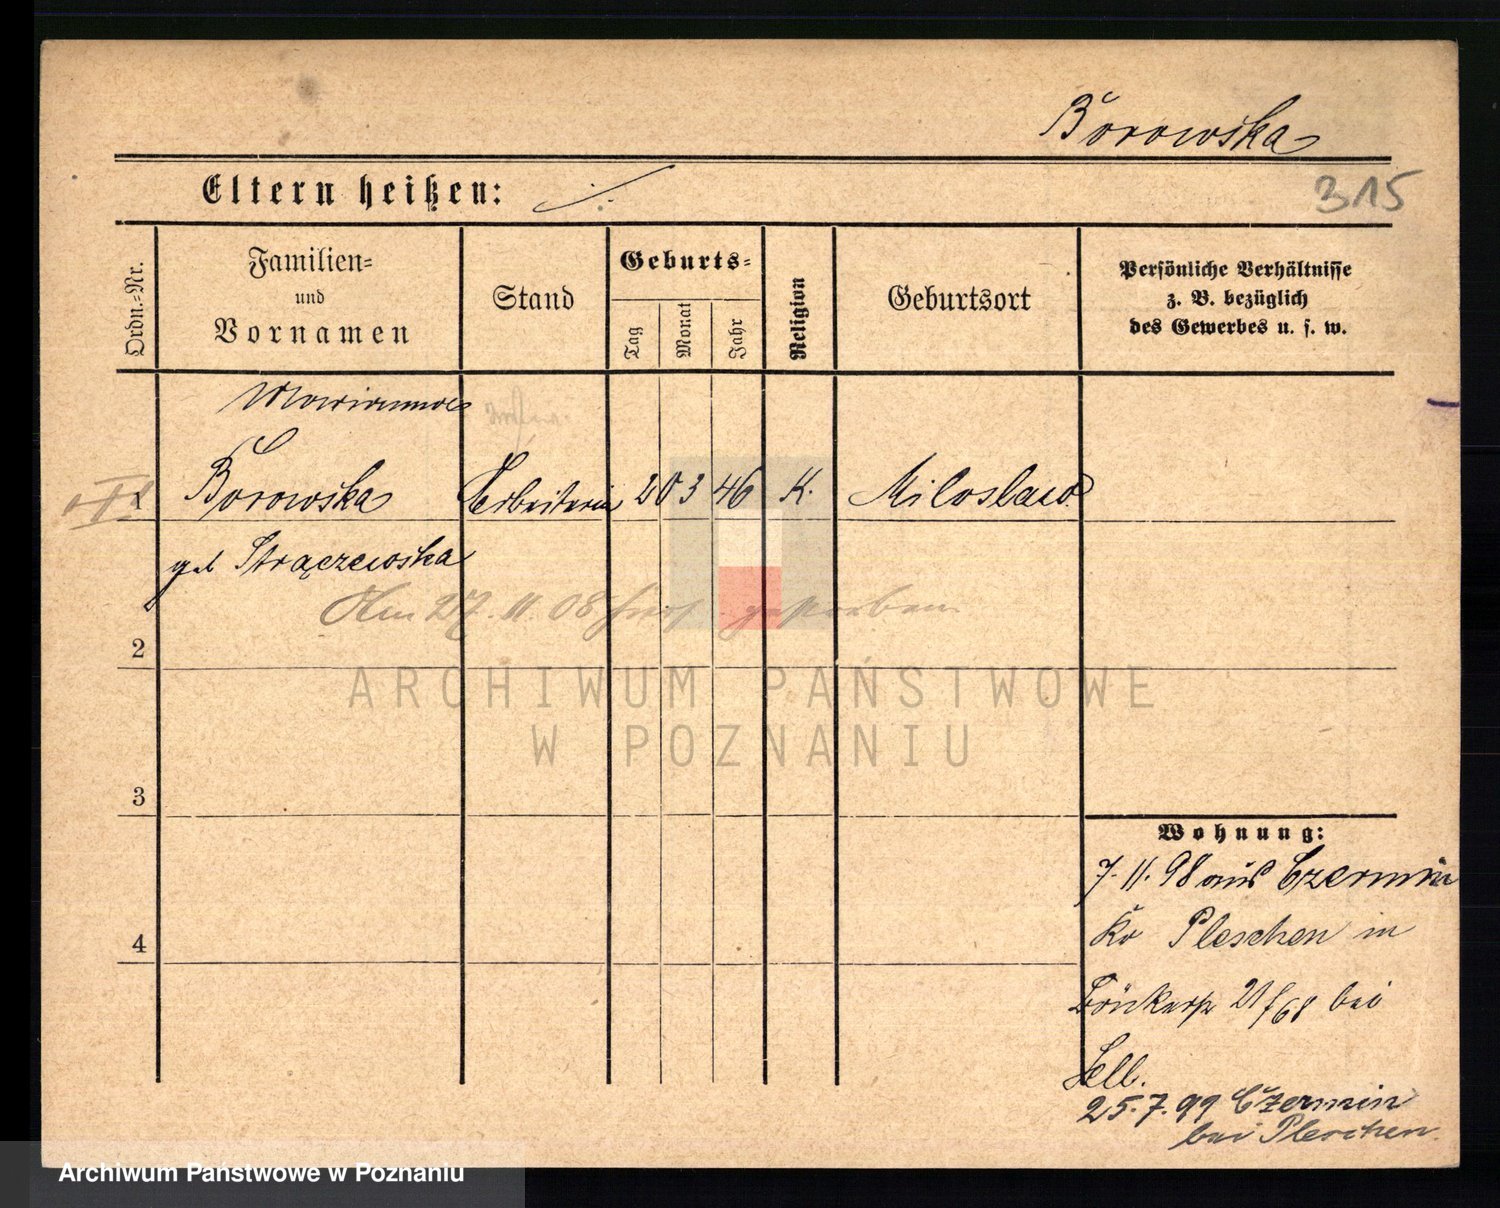 Borowska
Eltern heißen: ./.
315
Ordn.-Nr.
Familien-
und
Vornamen
Stand
Geburts-
Tag
Monat
Jahr
Religion
Geburtsort
Persönliche Verhältnisse
z. B. bezüglich
des Gewerbes u. s. w.
Marianna
1 Borowska Arbeiterin 20 3 46 K. Miloslaw
geb Strączewska
Am 27.11.08 hier gestorben
2
3
4
Wohnung:
7.11.98 aus Czermin
Kr Pleschen in
21/68 bei
Sell.
25.7.99 Czermin
bei Pleschen.
ARCHIWUM PAŃSTWOWE
W POZNANIU
Archiwum Państwowe w Poznaniu